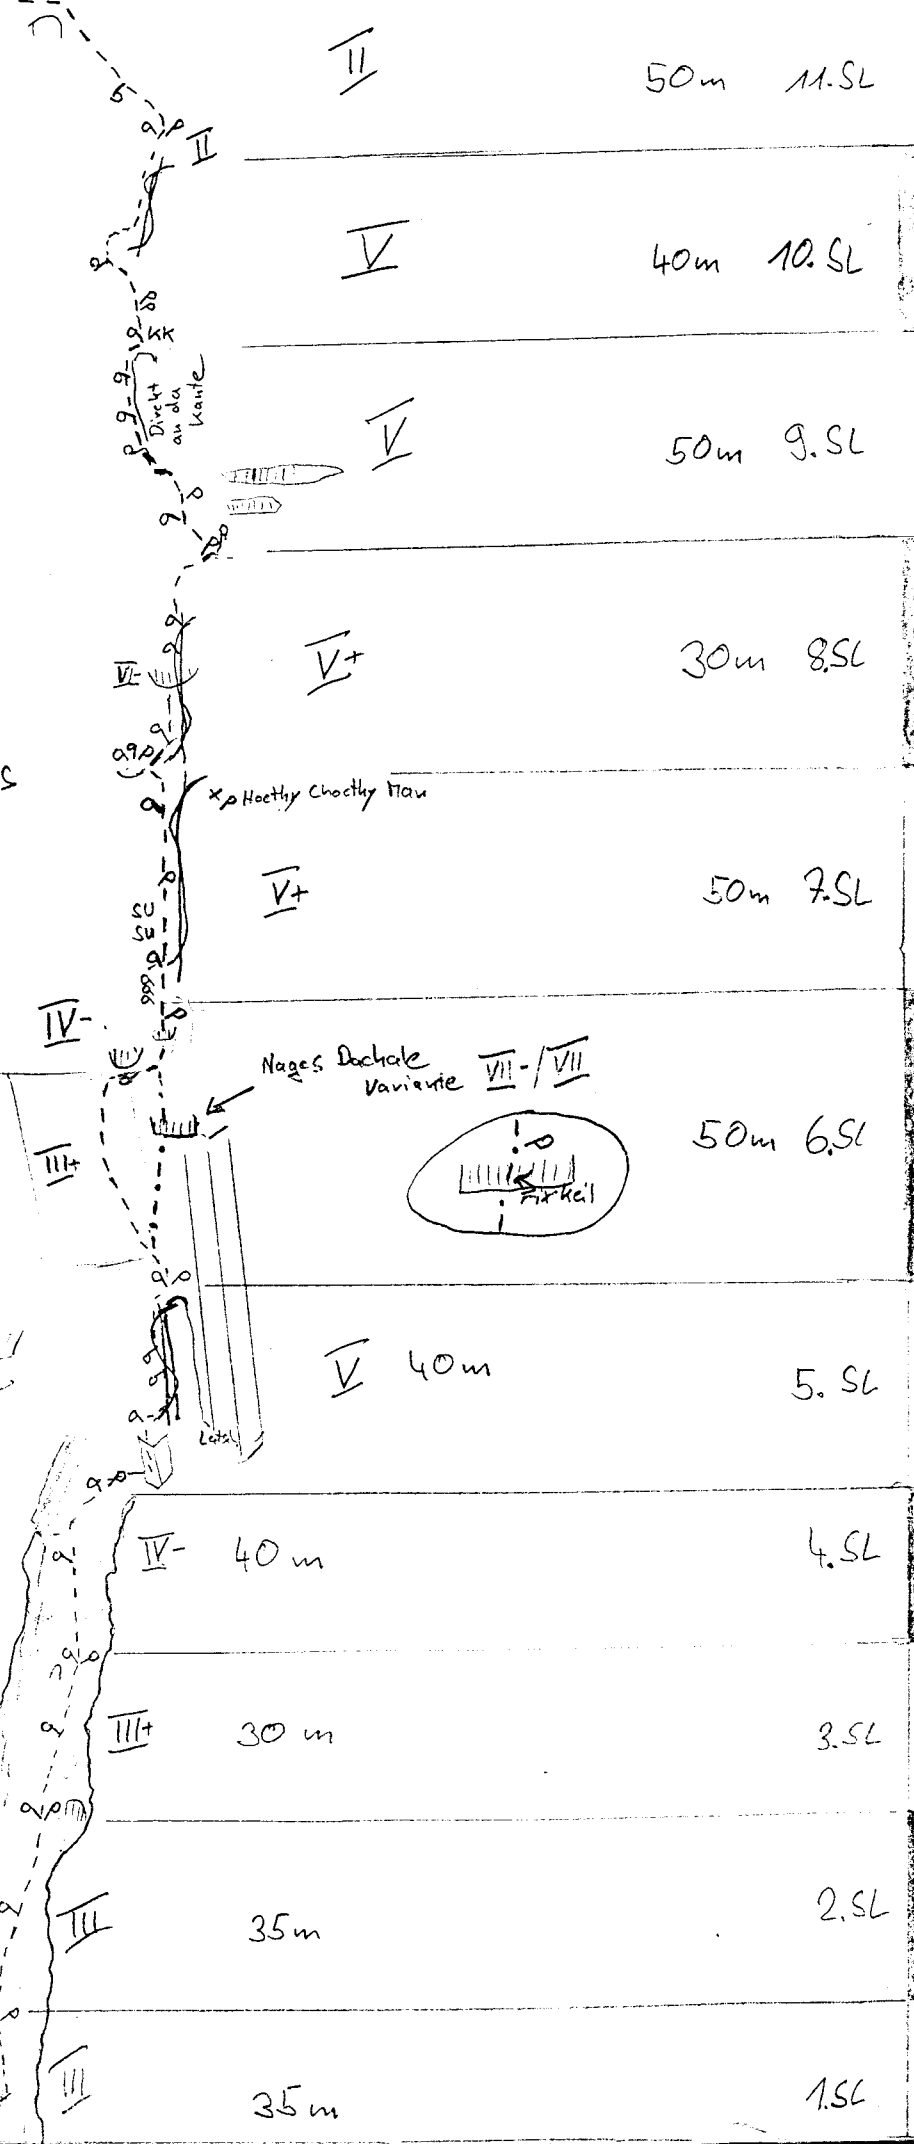 II 50m 11.SL
II
V 40m 10.SL
KK
Direkt
an der
Kante
V 50m 9.SL
V+ 30m 8.SL
VI-
Hoethy Choethy Man
V+ 50m 7.SL
SU
SU
IV-
Nages Dachale
Variante VII-/VII
III+
50m 6.SL
Fixkeil
V 40m 5. SL
IV- 40m 4.SL
III+ 30m 3.SL
III 35m 2.SL
III 35m 1.SL